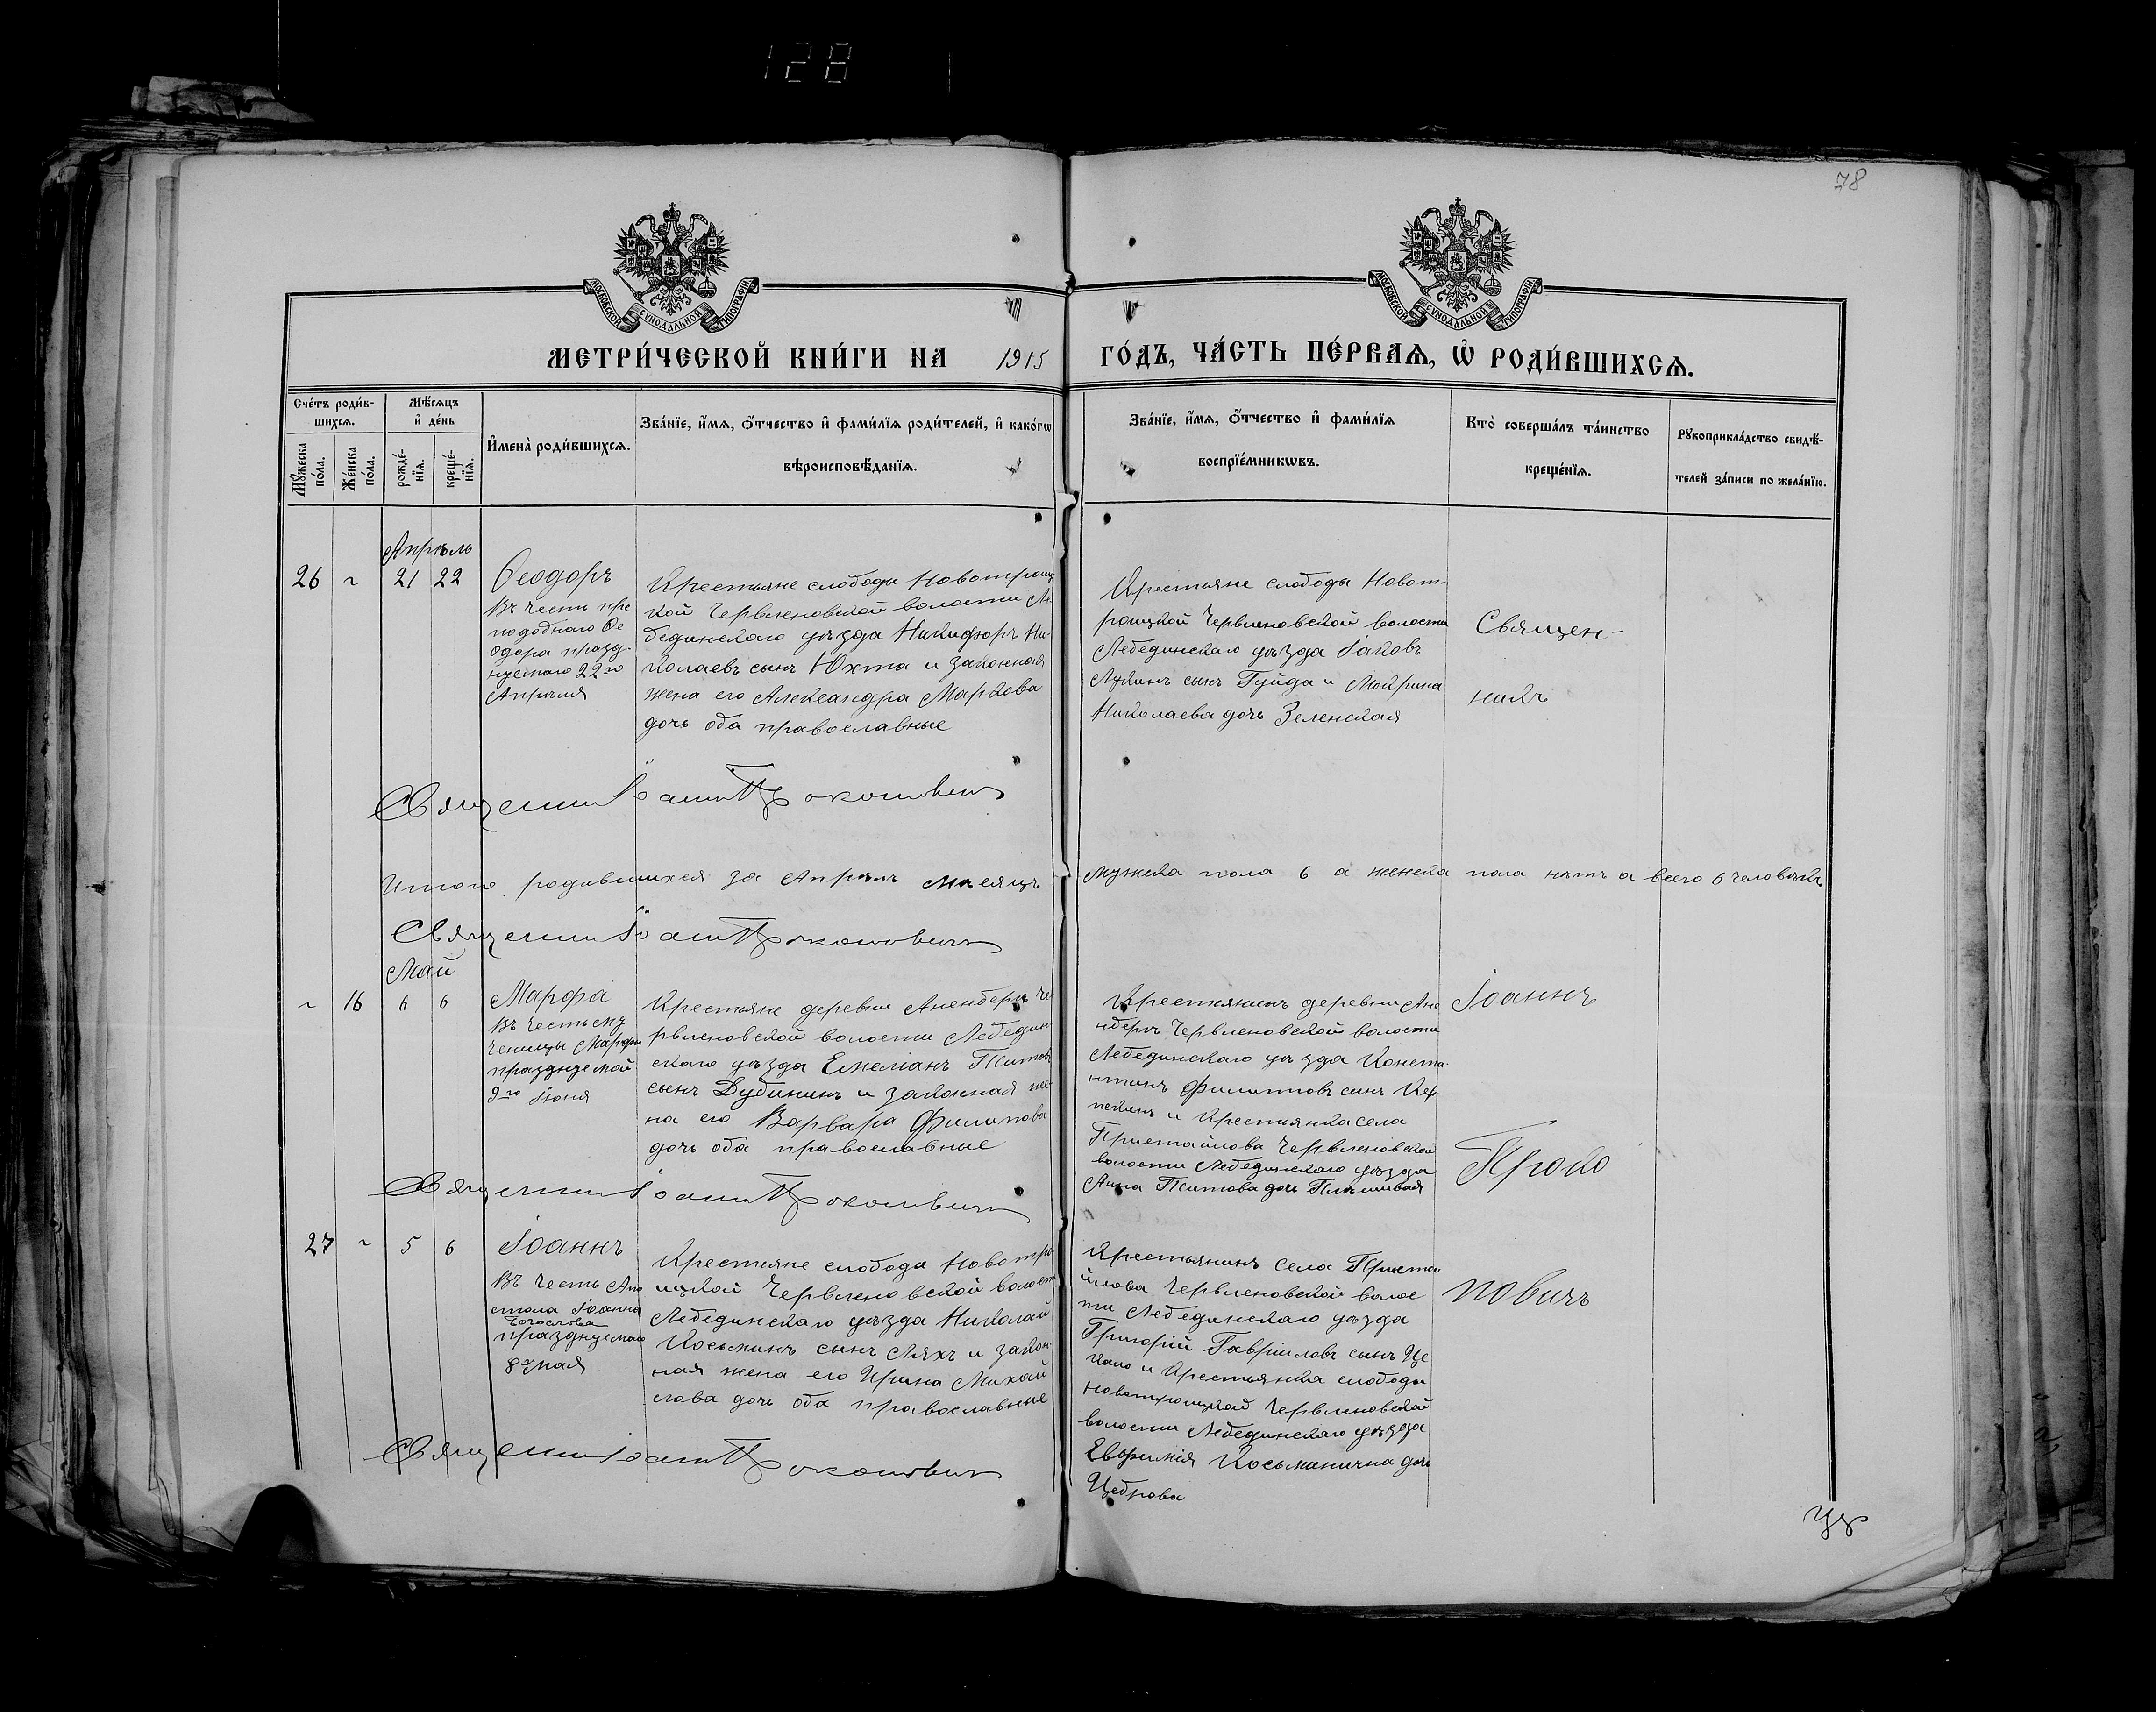 128
78
МОСКОВСКОЙ СУНОДАЛЬНОЙ ТИПОГРАФІИ
МОСКОВСКОЙ СУНОДАЛЬНОЙ ТИПОГРАФІИ
МЕТРИ́ЧЕСКОЙ КНИ́ГИ НА 1915 ГО́ДЪ, ЧА́СТЬ ПЕ́РВАѦ, Ѡ РОДИ́ВШИХСѦ.
Сче́тъ роди́в-
шихсѧ.
Мꙋ́жеска
по́ла.
Же́нска
по́ла.
Мѣ́сѧцъ
и҆ де́нь
рожде́-
нїѧ.
креще́-
нїѧ.
И҆мена̀ роди́вшихсѧ.
Зва́нїе, и҆́мѧ, ѻ҆́тчество и҆ фами́лїѧ роди́телей, и҆ како́гѡ
вѣроисповѣ́данїѧ.
Зва́нїе, и҆́мѧ, ѻ҆́тчество и҆ фами́лїѧ
воспрїе́мникѡвъ.
Кто̀ соверша́лъ та́инство
креще́нїѧ.
Рꙋкоприкла́дство свидѣ́-
телей за́писи по жела́нїю.
Апрѣль
26 ~ 21 22
Ѳеодоръ
Въ честь пре
подобнаго Ѳе
одора празд-
нуемаго 22го
Апрѣля
Крестьяне слободы Новотроиц
кой Червленовской волости Ле
бединскаго уѣзда Никифоръ Ни-
колаевъ сынъ Юхта и законная
жена его Александра Маркова
дочь оба православные
Крестьяне слободы Новот-
роицкой Червленовской волости
Лебединскаго уѣзда Іаковъ
Лукинъ сынъ Гуйда и Макрина
Николаева дочь Зеленская
Священ-
никъ
Священни Іоанн Прокопович
Итого родившихся за Апрѣль мѣсяцъ мужска пола 6 а женска пола нѣтъ а всего 6 человѣкъ
Священни Іоанн Прокоповичъ
Май
~ 16 6 6
Марфа
Въ честь му
ченицы Марфы
празднуемой
9го Іюня
Крестьяне деревни Анендеръ Че-
рвленовской волости Лебедин
скаго уѣзда Емеліанъ Титовъ
сынъ Дубининъ и законная же-
на его Варвара Филипова
дочь оба православные
Крестьянинъ деревни Ане
ндеръ Червленовской волости
Лебединскаго уѣзда Конста-
нтинъ Филиповъ сынъ
и Крестьянка села
Пристайлова Червленовской
волости Лебединскаго уѣзда
Анна Титова дочь
Іоаннъ
Проко
Священни Іоанн Прокопович
27 ~ 5 6
Іоаннъ
Въ честь Апо
стола Іоанна
Богослова
празднуемаго
8го мая
Крестьяне слободы Новотро
ицкой Червленовской волости
Лебединскаго уѣзда Николай
Косьминъ сынъ Ляхъ и закон
ная жена его Ирина Михай
лова дочь оба православные
Крестьянинъ села Приста
йлова Червленовской волос
ти Лебединскаго уѣзда
Григорій Гавріиловъ сынъ Це
и Крестьянка слободы
Новотроицкой Червленовской
волости Лебединскаго уѣзда
Евфимія Косьминична дочь
Цеброва
повичъ
Священни Іоанн Прокопович